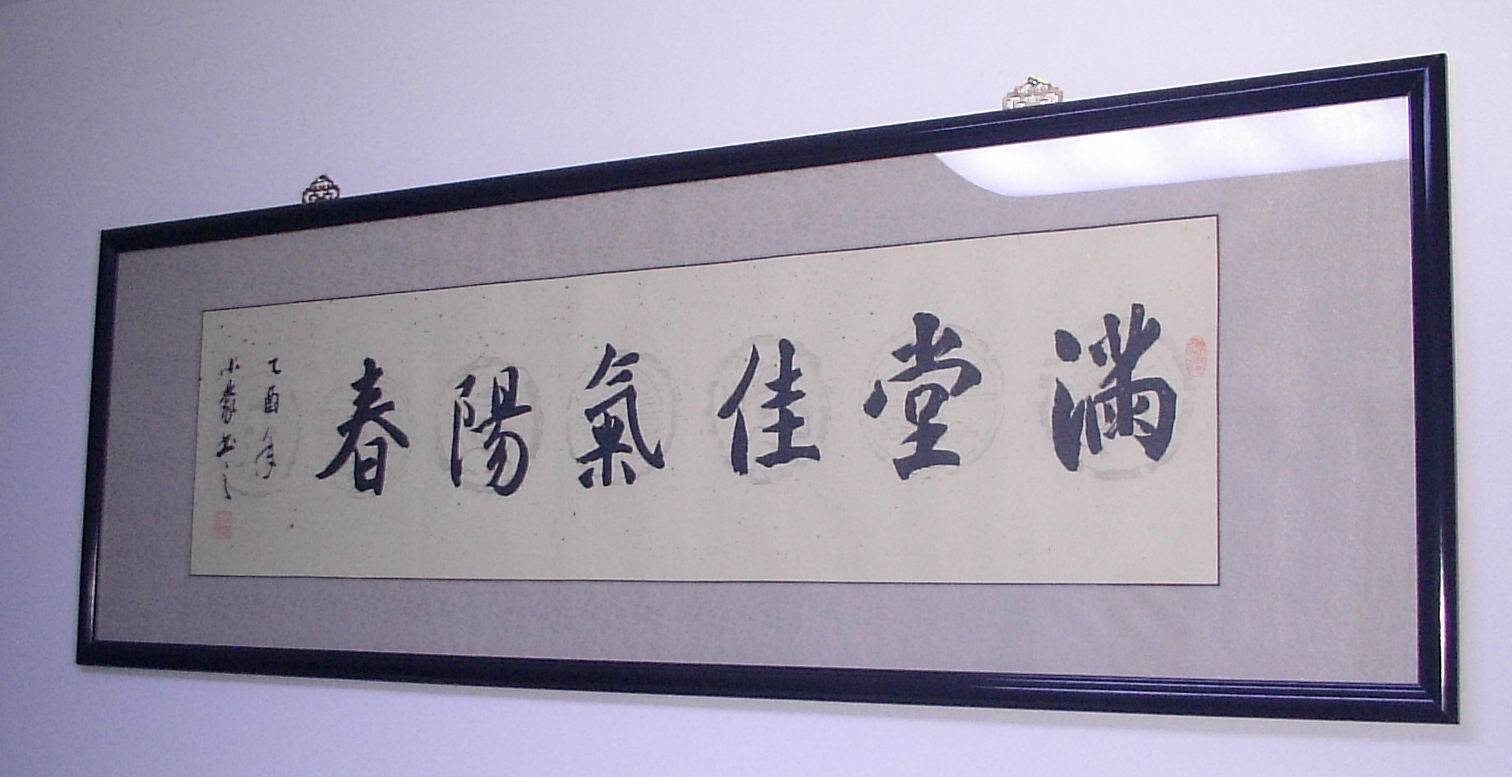 滿堂佳氣陽春
乙酉年
小蒙书之